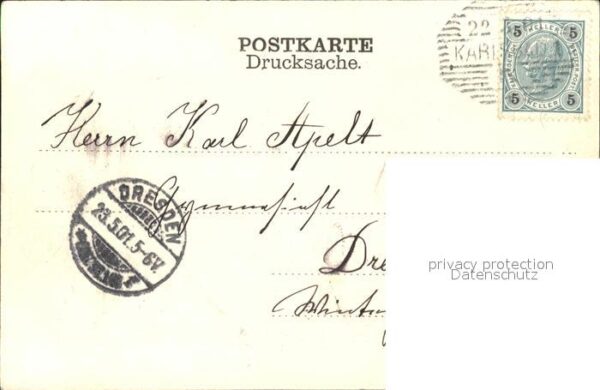 POSTKARTE
Drucksache.
22
KARLSBAD 1
5 HELLER 5
5 HELLER 5
Herrn Karl Apelt
Gymnasiast
Dre
Winte
DRESDEN
23.5.01.5-6V.
privacy protection
Datenschutz